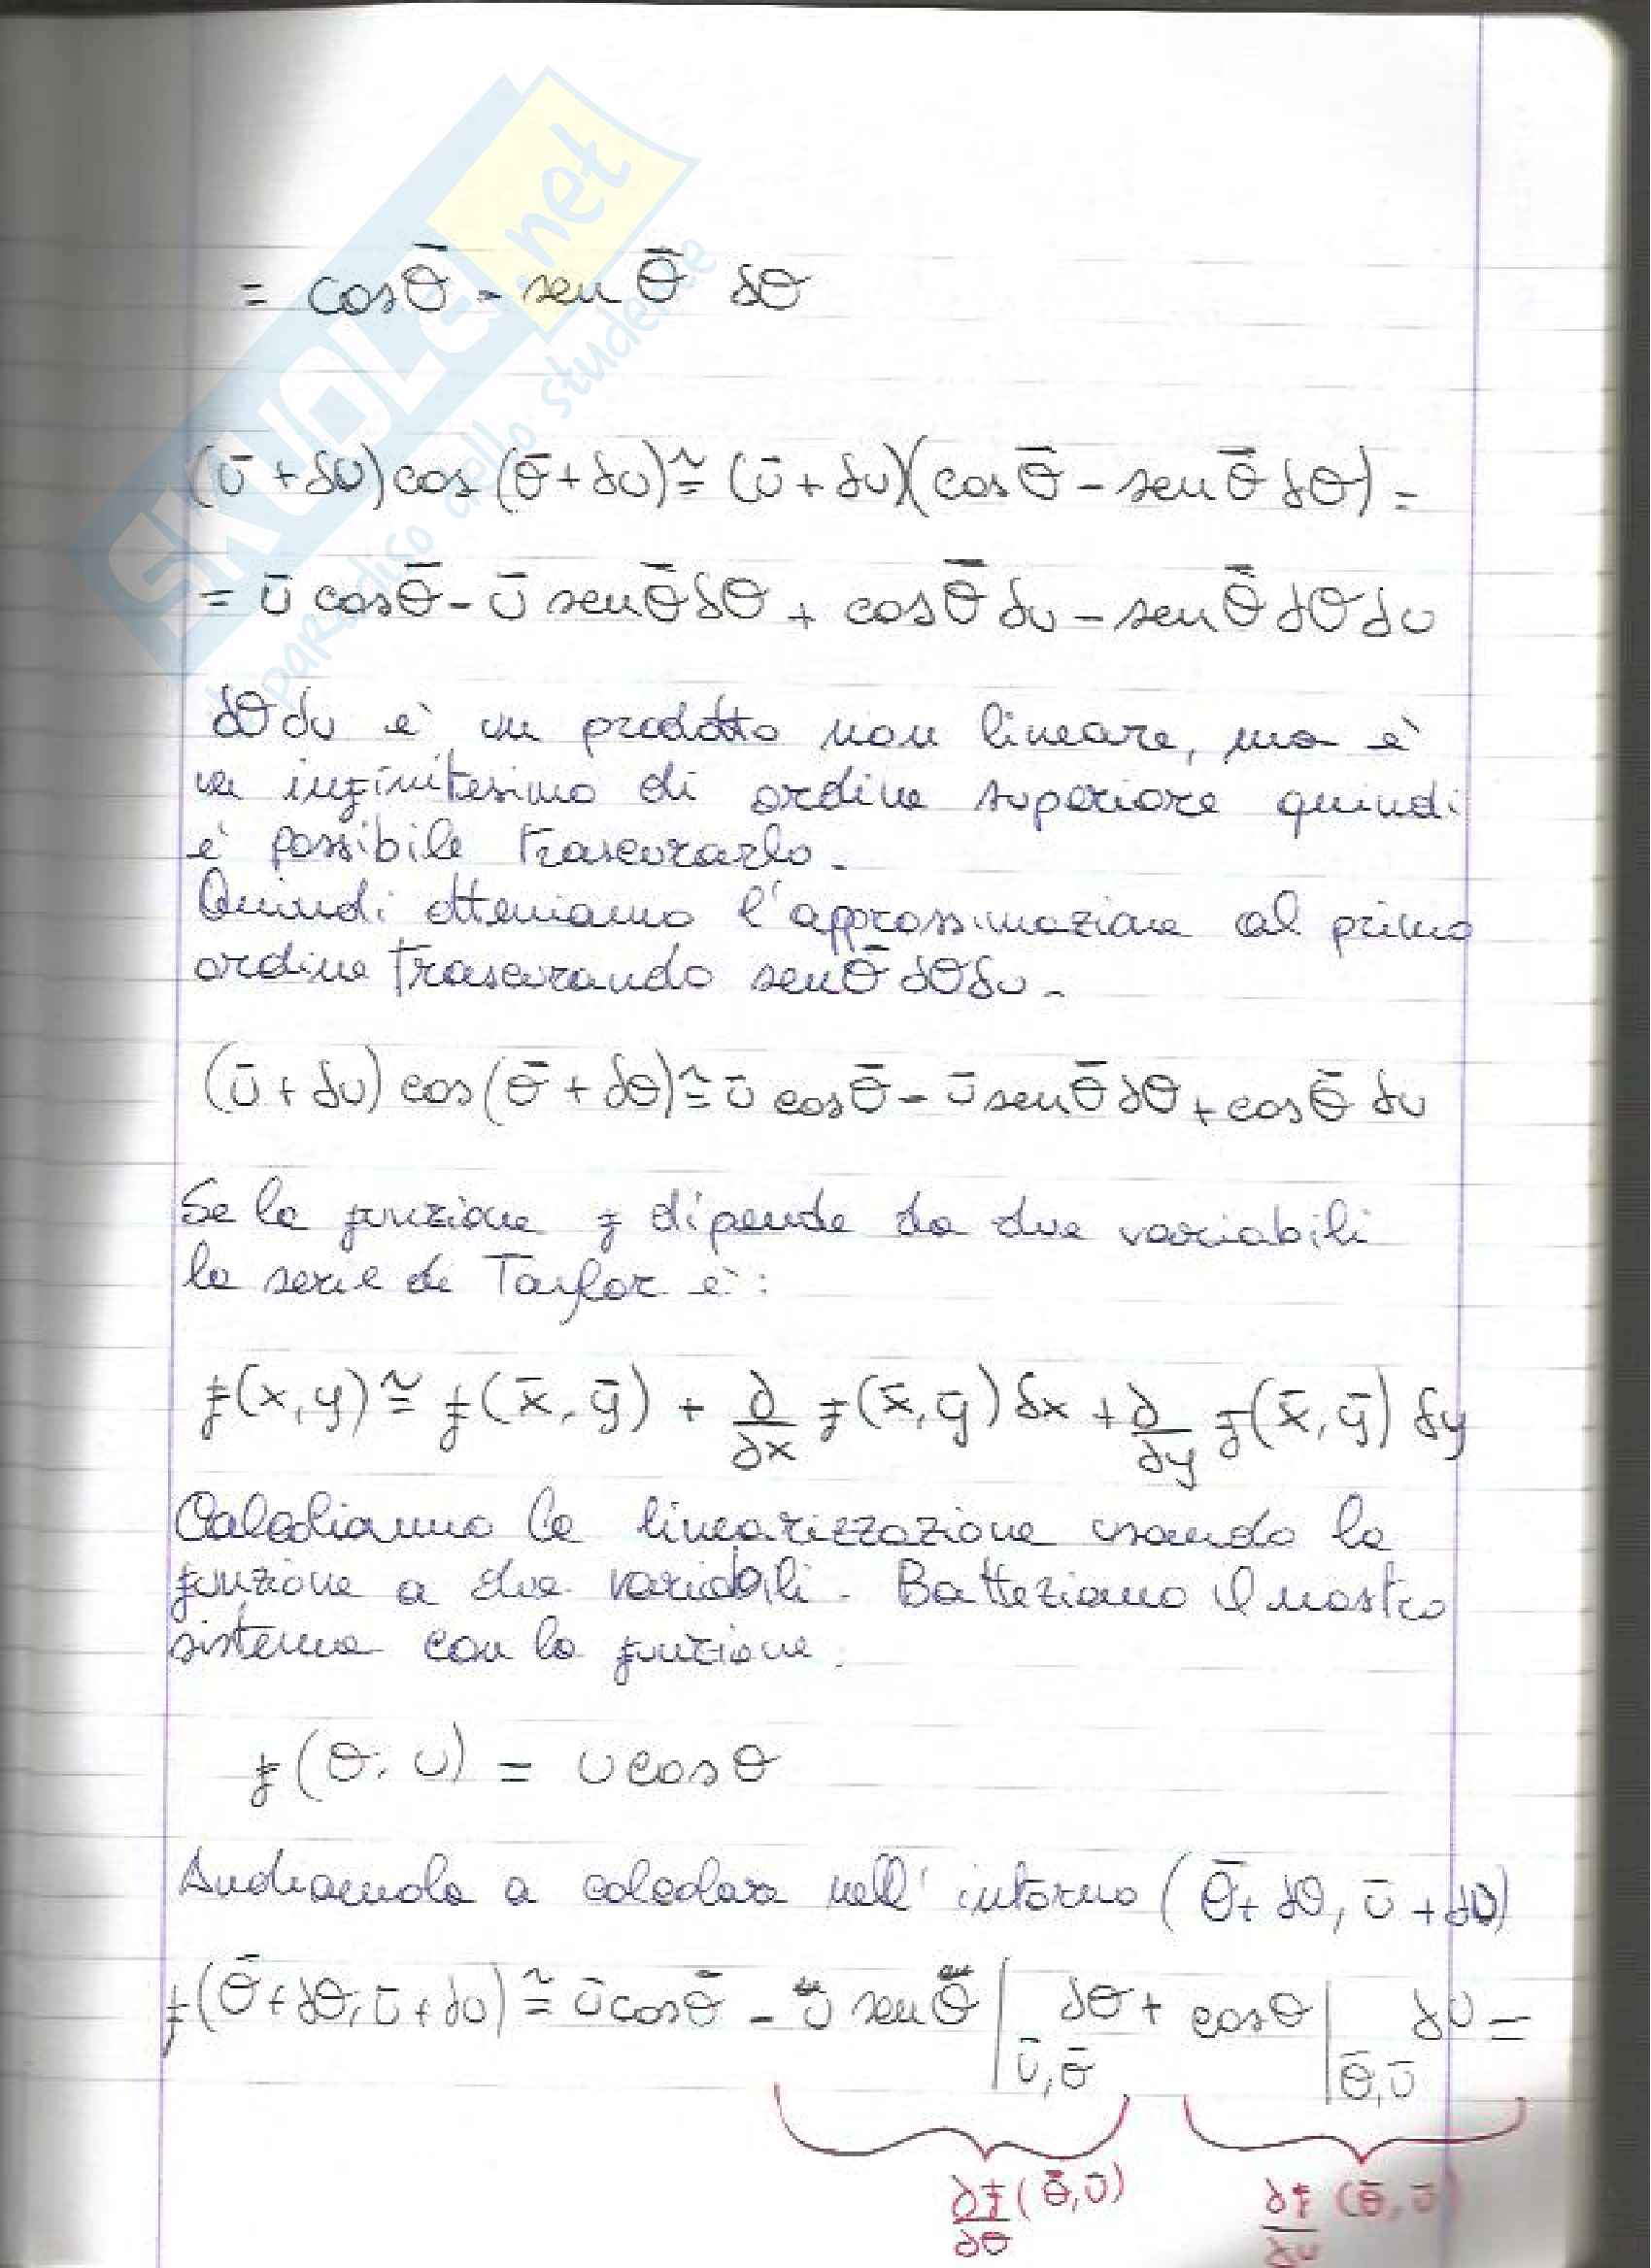 SKUOLA.net
il paradiso dello studente
= cos θ̄ - sen θ̄ δθ
(ū + δu) cos (θ̄ + δu) ≅ (ū + δu)(cos θ̄ - sen θ̄ δθ) =
= ū cos θ̄ - ū sen θ̄ δθ + cos θ̄ δu - sen θ̄ δθ δu
δθ δu è un prodotto non lineare, ma è
un infinitesimo di ordine superiore quindi
è possibile trascurarlo.
Quindi otteniamo l'approssimazione al primo
ordine trascurando sen θ̄ δθ δu.
(ū + δu) cos (θ̄ + δθ) ≅ ū cos θ̄ - ū sen θ̄ δθ + cos θ̄ δu
Se la funzione f dipende da due variabili
la serie di Taylor è:
f(x, y) ≅ f(x̄, ȳ) + ∂/∂x f(x̄, ȳ) δx + ∂/∂y f(x̄, ȳ) δy
Calcoliamo la linearizzazione usando la
funzione a due variabili. Batteziamo il nostro
sistema con la funzione:
f(θ, u) = u cos θ
Andiamola a calcolare nell'intorno (θ̄ + δθ, ū + δu)
f(θ̄ + δθ, ū + δu) ≅ ū cos θ̄ - u sen θ |ū, θ̄ δθ + cos θ |θ̄, ū δu =
∂f/∂θ (θ̄, ū) ∂f/∂u (θ̄, ū)